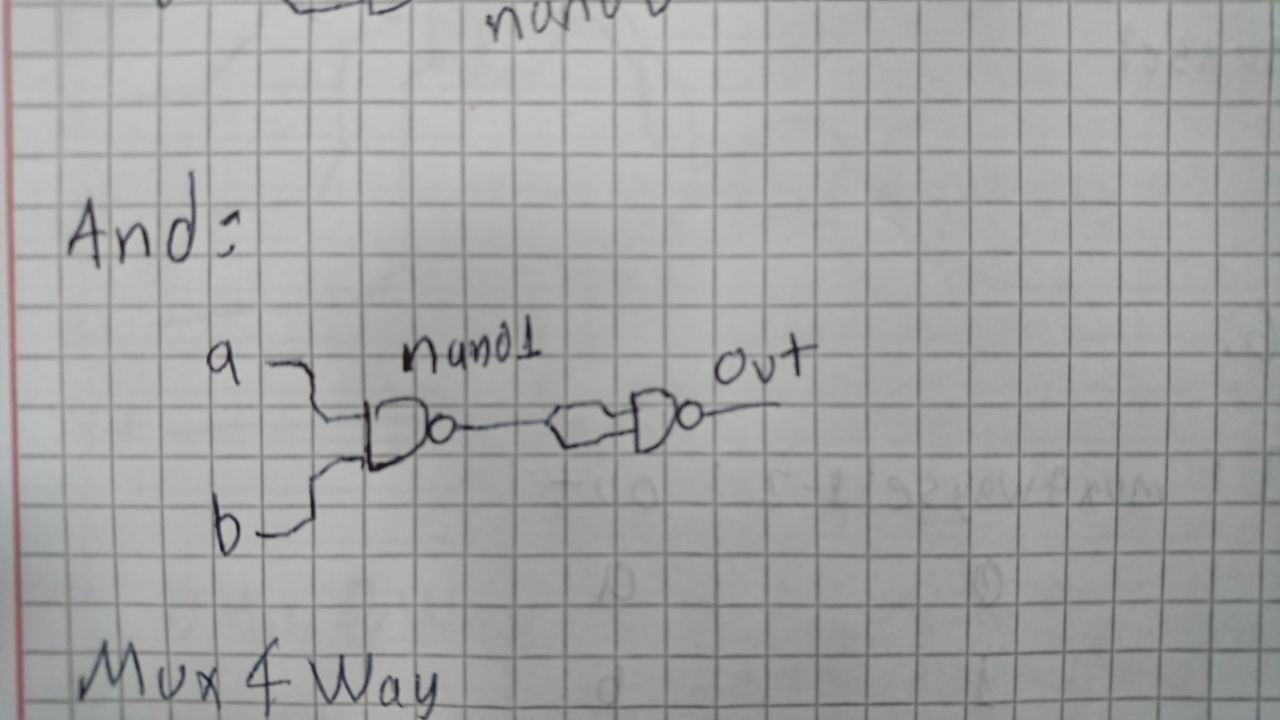 And:
nand1
a
out
b
Mux 4 Way